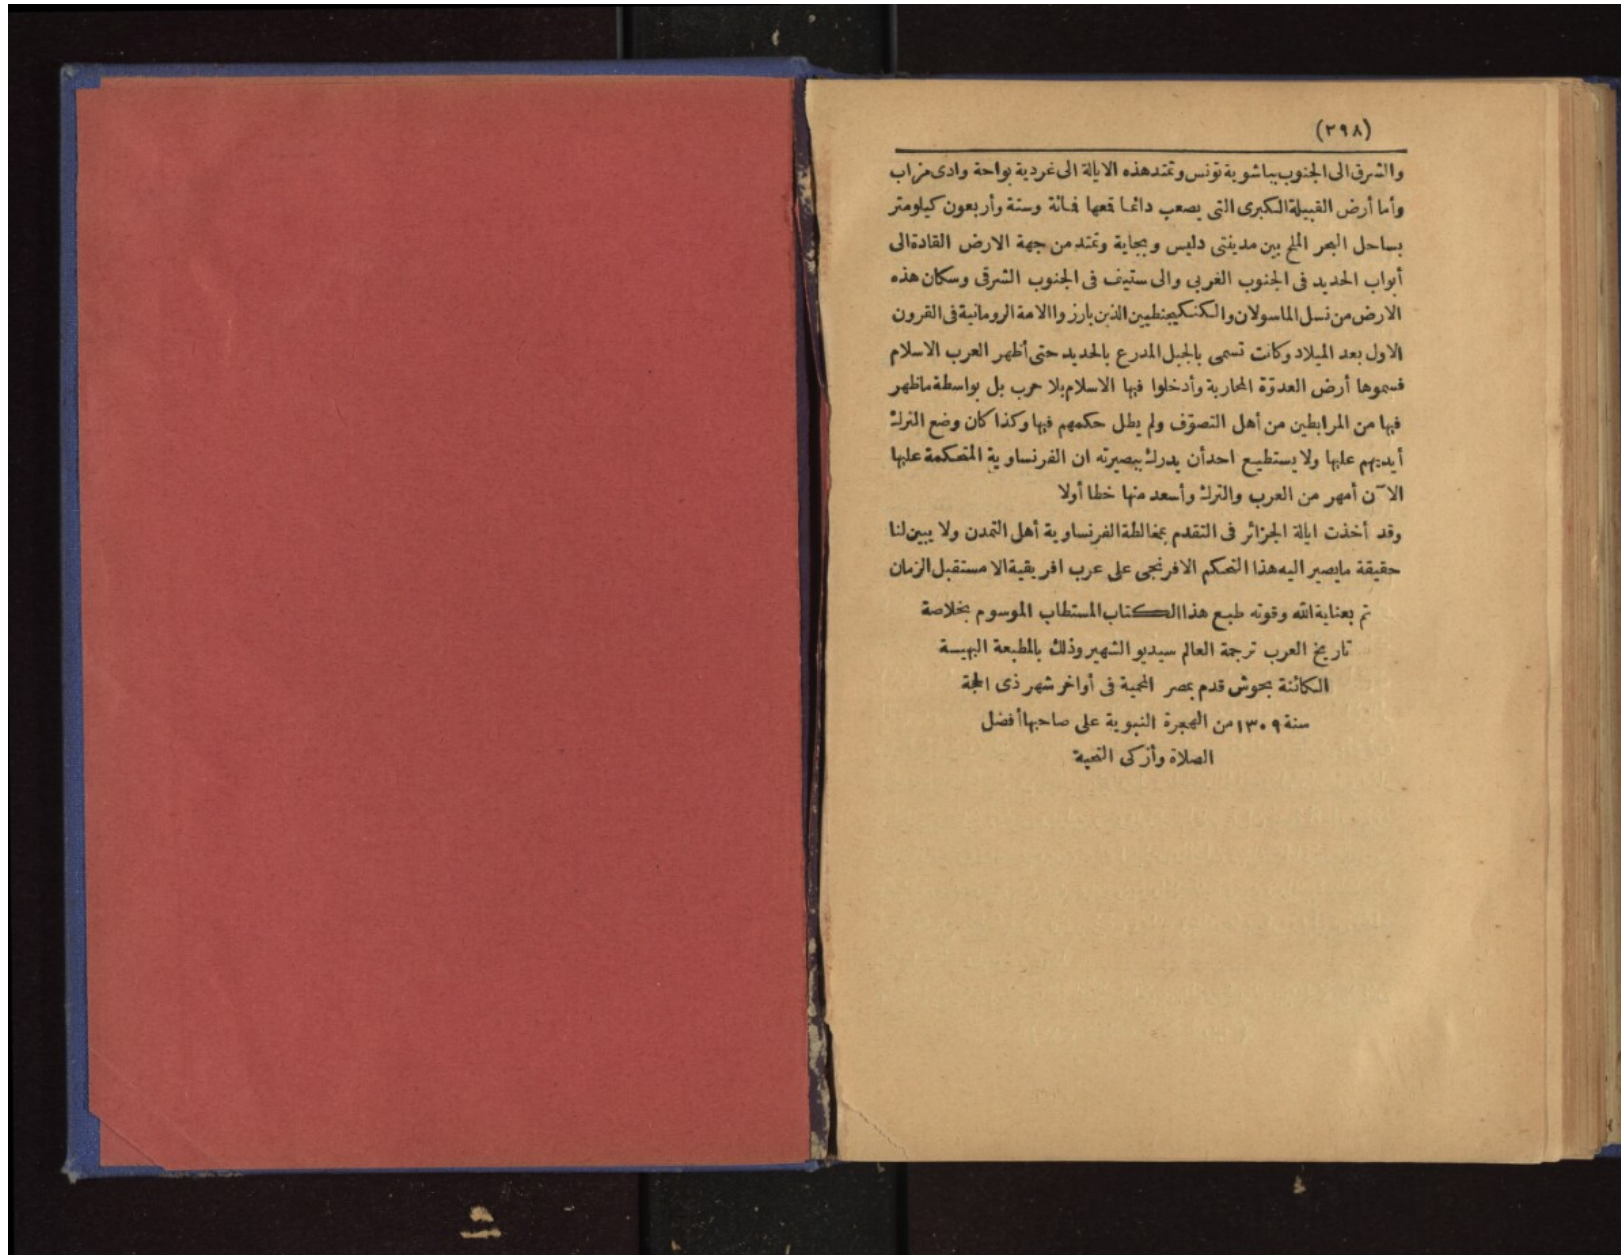 (٢٩٨)
والشرق الى الجنوب بباشوية تونس وتمتد هذه الايالة الى غردية بواحة وادى مزاب
وأما أرض القبيلة الكبرى التى يصعب دائما قعها فمائة وستة وأربعون كيلومتر
بساحل البحر الملح بين مدينتى دليس وبجاية وتمتد من جهة الارض القادة الى
أبواب الحديد فى الجنوب الغربى والى ستيف فى الجنوب الشرقى وسكان هذه
الارض من نسل الماسولان والكنكيجنطيين الذين بارزوا الامة الرومانية فى القرون
الاول بعد الميلاد وكانت تسمى بالجبل المدرع بالحديد حتى أظهر العرب الاسلام
فسموها أرض العدوّة المحاربة وأدخلوا فيها الاسلام بلا حرب بل بواسطة ماظهر
فيها من المرابطين من أهل التصوّف ولم يطل حكمهم فيها وكذا كان وضع الترك
أيديهم عليها ولا يستطيع احد أن يدرك ببصيرته ان الفرنساوية المتحكمة عليها
الآن أمهر من العرب والترك وأسعد منها خطا أولا
وقد أخذت ايالة الجزائر فى التقدم بمخالطة الفرنساوية أهل التمدن ولا يبين لنا
حقيقة مايصير اليه هذا التحكم الافرنجى على عرب افريقية الا مستقبل الزمان
تم بعناية الله وقوته طبع هذا الكتاب المستطاب الموسوم بخلاصة
تاريخ العرب ترجمة العالم سيديو الشهير وذلك بالمطبعة البهيسة
الكائنة بحوش قدم بمصر المحمية فى أواخر شهر ذى الحجة
سنة ١٣٠٩ من الهجرة النبوية على صاحبها أفضل
الصلاة وأزكى التحية